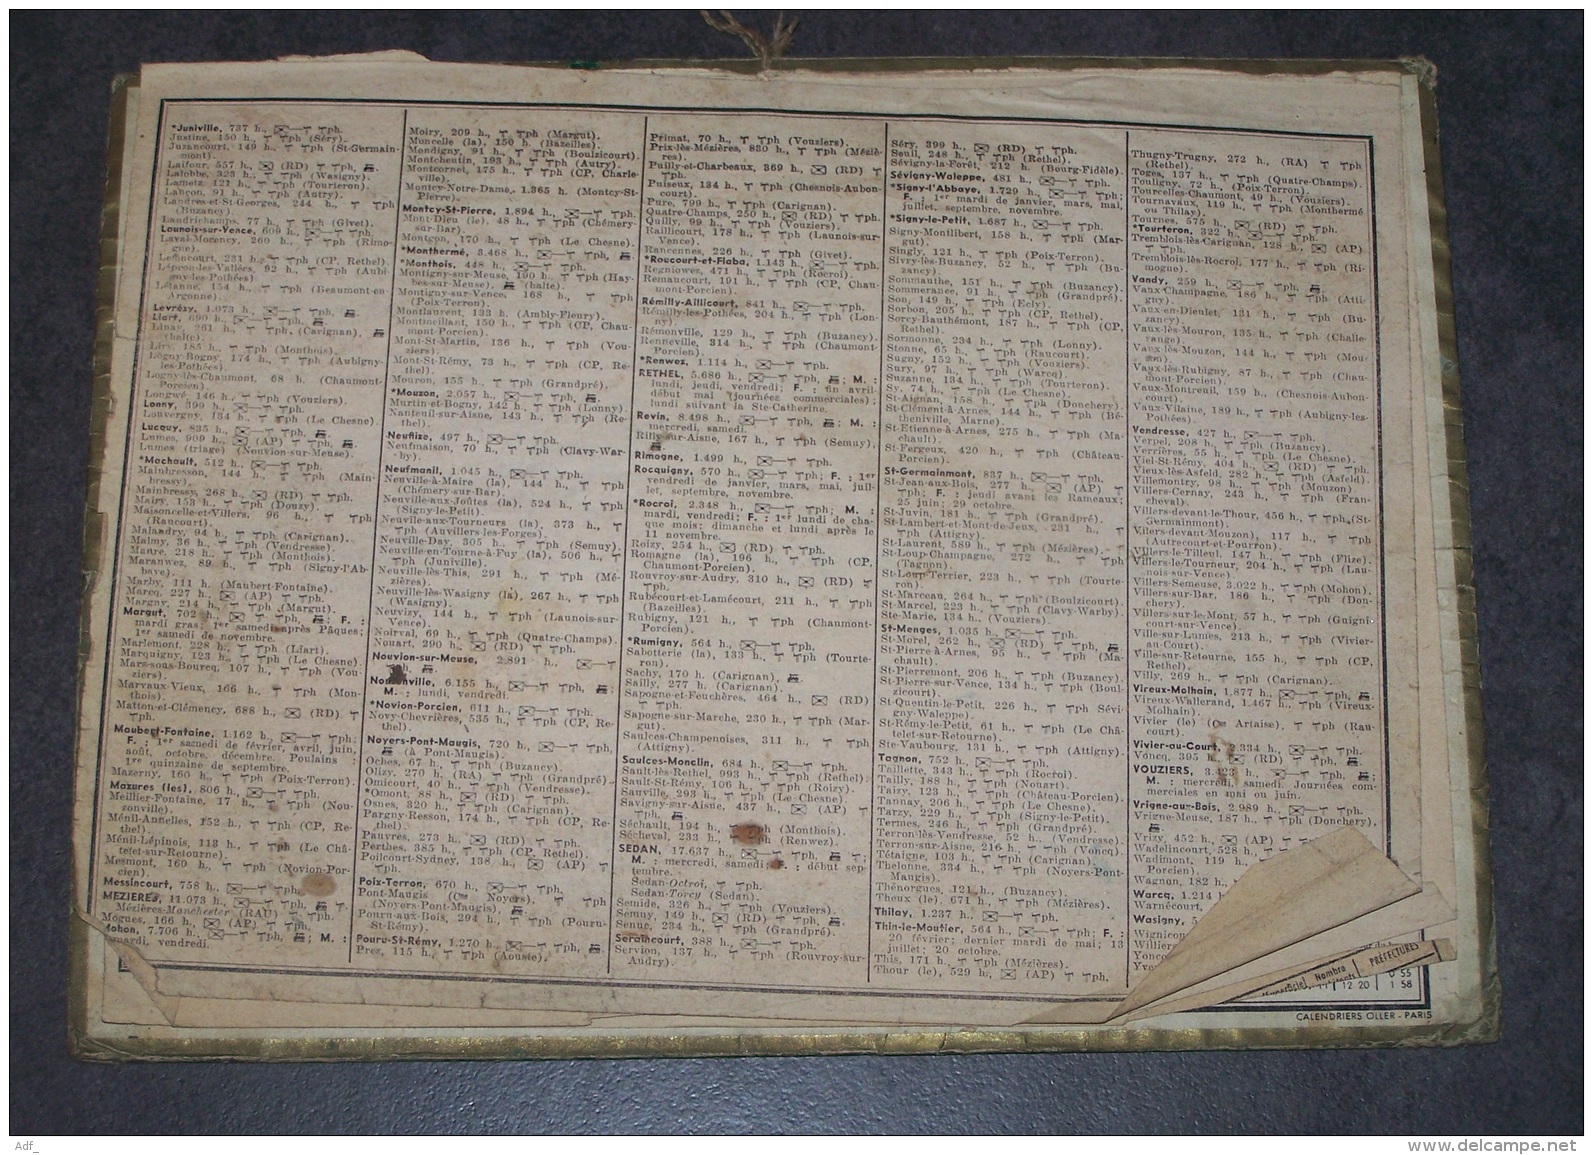 *Juniville, 737 h., ph.
Justine, 150 h., ph (Séry).
Juzancourt, 149 h., ph (St-Germain-
mont).
Laifour, 557 h., (RD) ph,
Lalobbe, 323 h., ph (Wasigny).
Lametz, 121 h., ph (Tourteron).
Lançon, 91 h., ph (Autry).
Landres-et-St-Georges, 244 h., ph
(Buzancy).
Landrichamps, 77 h., ph (Givet).
Launois-sur-Vence, 609 h., ph.
Laval-Morency, 260 h., ph (Rimo-
gne).
Leffincourt, 231 h., ph (CP, Rethel).
Lépron-les-Vallées, 92 h., ph (Aubi-
gny-les-Pothées).
Létanne, 154 h., ph (Beaumont-en-
Argonne).
Levrézy, 1.073 h., ph,
Liart, 690 h., ph,
Linay, 261 h., ph (Carignan),
(halte).
Liry, 185 h., ph (Monthois).
Logny-Bogny, 174 h., ph (Aubigny-
les-Pothées).
Logny-lès-Chaumont, 68 h. (Chaumont-
Porcien).
Longwé, 146 h., ph (Vouziers).
Lonny, 399 h., ph.
Louvergny, 134 h., ph (Le Chesne).
Lucquy, 835 h., ph,
Lumes, 909 h., (AP) ph,
Lumes (triage) (Nouvion-sur-Meuse).
*Machault, 512 h., ph.
Mainbresson, 144 h., ph (Main-
bressy).
Mainbressy, 268 h., (RD) ph.
Mairy, 158 h., ph (Douzy).
Maisoncelle-et-Villers, 96 h., ph
(Raucourt).
Malandry, 94 h., ph (Carignan).
Malmy, 36 h., ph (Vendresse).
Manre, 218 h., ph (Monthois).
Maranwez, 89 h., ph (Signy-l'Ab-
baye).
Marby, 111 h. (Maubert-Fontaine).
Marcq, 227 h., (AP) ph.
Margny, 214 h., ph (Margut).
Margut, 702 h., ph, ; F. :
mardi gras; 1er samedi après Pâques;
1er samedi de novembre.
Marlemont, 228 h., ph (Liart).
Marquigny, 123 h., ph (Le Chesne).
Mars-sous-Bourcq, 107 h., ph (Vou-
ziers).
Marvaux-Vieux, 166 h., ph (Mon-
thois).
Matton-et-Clémency, 688 h., (RD)
ph.
Maubert-Fontaine, 1.162 h., ph;
F. : 1er samedi de février, avril, juin,
août, octobre, décembre. Poulains :
1re quinzaine de septembre.
Mazerny, 160 h., ph (Poix-Terron).
Mazures (les), 806 h., ph.
Meillier-Fontaine, 17 h., ph (Nou-
zonville).
Ménil-Annelles, 152 h., ph (CP, Re-
thel).
Ménil-Lépinois, 113 h., ph (Le Châ-
telet-sur-Retourne).
Mesmont, 160 h., ph (Novion-Por-
cien).
Messincourt, 758 h., ph.
MEZIERES, 11.073 h., ph,
Mézières-Manchester (RAU) ph.
Mogues, 166 h., (AP) ph.
Mohon, 7.706 h., ph, ; M. :
mardi, vendredi.
Moiry, 209 h., ph (Margut).
Moncelle (la), 150 h. (Bazeilles).
Mondigny, 91 h., ph (Boulzicourt).
Montcheutin, 193 h., ph (Autry).
Montcornet, 175 h., ph (CP, Charle-
ville).
Montcy-Notre-Dame, 1.365 h. (Montcy-St-
Pierre).
Montcy-St-Pierre, 1.894 h., ph.
Mont-Dieu (le), 48 h., ph (Chémery-
sur-Bar).
Montgon, 170 h., ph (Le Chesne).
*Monthermé, 3.468 h., ph,
*Monthois, 448 h., ph,
Montigny-sur-Meuse, 190 h., ph (Hay-
bes-sur-Meuse). (halte).
Montigny-sur-Vence, 168 h., ph
(Poix-Terron).
Montlaurent, 133 h. (Ambly-Fleury).
Montmeillant, 150 h., ph (CP, Chau-
mont-Porcien).
Mont-St-Martin, 136 h., ph (Vou-
ziers).
Mont-St-Rémy, 73 h., ph (CP, Re-
thel).
Mouron, 155 h., ph (Grandpré).
*Mouzon, 2.057 h., ph,
Murtin-et-Bogny, 142 h., ph (Lonny).
Nanteuil-sur-Aisne, 143 h., ph (Re-
thel).
Neuflize, 497 h., ph,
Neufmaison, 70 h., ph (Clavy-War-
by).
Neufmanil, 1.045 h., ph.
Neuville-à-Maire (la), 144 h., ph
(Chémery-sur-Bar).
Neuville-aux-Joûtes (la), 524 h., ph
(Signy-le-Petit).
Neuville-aux-Tourneurs (la), 373 h.,
ph (Auvillers-les-Forges).
Neuville-Day, 305 h., ph (Semuy).
Neuville-en-Tourne-à-Fuy (la), 506 h.,
ph (Juniville).
Neuville-lès-This, 291 h., ph (Mé-
zières).
Neuville-lès-Wasigny (la), 267 h., ph
(Wasigny).
Neuvizy, 144 h., ph (Launois-sur-
Vence).
Noirval, 69 h., ph (Quatre-Champs).
Nouart, 290 h., (RD) ph.
Nouvion-sur-Meuse, 2.891 h.,
ph,
Nouzonville, 6.155 h., ph, ;
M. : lundi, vendredi.
*Novion-Porcien, 611 h., ph.
Novy-Chevrières, 535 h., ph (CP, Re-
thel).
Noyers-Pont-Maugis, 720 h., ph,
(à Pont-Maugis).
Oches, 67 h., ph (Buzancy).
Olizy, 270 h. (RA) ph (Grandpré).
Omicourt, 40 h., ph (Vendresse).
*Omont, 88 h., (RD) ph.
Osnes, 320 h., ph (Carignan).
Pargny-Resson, 174 h., ph (CP, Re-
thel).
Pauvres, 273 h., (RD) ph.
Perthes, 385 h., ph (CP, Rethel).
Poilcourt-Sydney, 138 h., (AP)
ph.
Poix-Terron, 670 h., ph,
Pont-Maugis (Cne Noyers), ph
(Noyers-Pont-Maugis),
Pouru-aux-Bois, 294 h., ph (Pouru-
St-Rémy).
Pouru-St-Rémy, 1.270 h., ph,
Prez, 115 h., ph (Aouste).
Primat, 70 h., ph (Vouziers).
Prix-lès-Mézières, 830 h., ph (Méziè-
res).
Puilly-et-Charbeaux, 369 h., (RD)
ph.
Puiseux, 134 h., ph (Chesnois-Aubon-
court).
Pure, 799 h., ph (Carignan).
Quatre-Champs, 250 h., (RD) ph.
Quilly, 99 h., ph (Vouziers).
Raillicourt, 178 h., ph (Launois-sur-
Vence).
Rancennes, 226 h., ph (Givet).
*Roucourt-et-Flaba, 1.143 h., ph.
Regniowez, 471 h., ph (Rocroi).
Remaucourt, 191 h., ph (CP, Chau-
mont-Porcien).
Rémilly-Aillicourt, 841 h., ph.
Rémilly-les-Pothées, 204 h., ph (Lon-
ny).
Rémonville, 129 h., ph (Buzancy).
Renneville, 314 h., ph (Chaumont-
Porcien).
*Renwez, 1.114 h., ph.
RETHEL, 5.686 h., ph, ; M. :
lundi, jeudi, vendredi; F. : fin avril-
début mai (journées commerciales);
lundi suivant la Ste-Catherine.
Revin, 8.498 h., ph, ; M. :
mercredi, samedi.
Rilly-sur-Aisne, 167 h., ph (Semuy),
Rimogne, 1.499 h., ph.
Rocquigny, 570 h., ph; F. : 1er
vendredi de janvier, mars, mai, juil-
let, septembre, novembre.
*Rocroi, 2.348 h., ph; M. :
mardi, vendredi; F. : 1er lundi de cha-
que mois; dimanche et lundi après le
11 novembre.
Roizy, 254 h., (RD) ph.
Romagne (la), 196 h., ph (CP,
Chaumont-Porcien).
Rouvroy-sur-Audry, 310 h., (RD)
ph.
Rubécourt-et-Lamécourt, 211 h., ph
(Bazeilles).
Rubigny, 121 h., ph (Chaumont-
Porcien).
*Rumigny, 564 h., ph.
Sabotterie (la), 133 h., ph (Tourte-
ron).
Sachy, 170 h. (Carignan),
Sailly, 277 h. (Carignan).
Sapogne-et-Feuchères, 464 h., (RD)
ph.
Sapogne-sur-Marche, 230 h., ph (Mar-
gut).
Saulces-Champenoises, 311 h., ph
(Attigny).
Saulces-Monclin, 684 h., ph.
Sault-lès-Rethel, 993 h., ph (Rethel).
Sault-St-Rémy, 106 h., ph (Roizy).
Sauville, 293 h., ph (Le Chesne).
Savigny-sur-Aisne, 437 h., (AP)
ph,
Séchault, 194 h., ph (Monthois).
Sécheval, 233 h., ph (Renwez).
SEDAN, 17.637 h., ph, ;
M. : mercredi, samedi; F. : début sep-
tembre.
Sedan-Octroi, ph.
Sedan-Torcy (Sedan).
Semide, 326 h., ph (Vouziers).
Semuy, 149 h., (RD) ph,
Senuc, 234 h., ph (Grandpré).
Seraincourt, 388 h., ph.
Servion, 137 h., ph (Rouvroy-sur-
Audry).
Séry, 399 h., (RD) ph.
Seuil, 248 h., ph (Rethel).
Sévigny-la-Forêt, 212 h. (Bourg-Fidèle).
Sévigny-Waleppe, 481 h., ph.
*Signy-l'Abbaye, 1.729 h., ph;
F. : 1er mardi de janvier, mars, mai,
juillet, septembre, novembre.
*Signy-le-Petit, 1.687 h., ph.
Signy-Montlibert, 158 h., ph (Mar-
gut).
Singly, 121 h., ph (Poix-Terron).
Sivry-lès-Buzancy, 52 h., ph (Bu-
zancy).
Sommauthe, 151 h., ph (Buzancy).
Sommerance, 91 h., ph (Grandpré).
Son, 149 h., ph (Ecly).
Sorbon, 205 h., ph (CP, Rethel).
Sorcy-Bauthémont, 187 h., ph (CP,
Rethel).
Sormonne, 234 h., ph (Lonny).
Stonne, 65 h., ph (Raucourt).
Sugny, 152 h., ph (Vouziers).
Sury, 97 h., ph (Warcq).
Suzanne, 134 h., ph (Tourteron).
Sy, 74 h., ph (Le Chesne).
St-Aignan, 158 h., ph (Donchery).
St-Clément-à-Arnes, 144 h., ph (Bé-
theniville, Marne).
St-Etienne-à-Arnes, 275 h., ph (Ma-
chault).
St-Fergeux, 420 h., ph (Château-
Porcien).
St-Germainmont, 837 h., ph.
St-Jean-aux-Bois, 277 h., (AP)
ph; F. : jeudi avant les Rameaux;
25 juin; 29 octobre.
St-Juvin, 181 h., ph (Grandpré).
St-Lambert-et-Mont-de-Jeux, 231 h.,
ph (Attigny).
St-Laurent, 589 h., ph (Mézières).
St-Loup-Champagne, 272 h., ph
(Tagnon).
St-Loup-Terrier, 223 h., ph (Tourte-
ron).
St-Marceau, 264 h., ph (Boulzicourt).
St-Marcel, 223 h., ph (Clavy-Warby).
Ste-Marie, 134 h., ph (Vouziers).
St-Menges, 1.035 h., ph.
St-Morel, 262 h., (RD) ph,
St-Pierre-à-Arnes, 95 h., ph (Ma-
chault).
St-Pierremont, 206 h., ph (Buzancy).
St-Pierre-sur-Vence, 134 h., ph (Boul-
zicourt).
St-Quentin-le-Petit, 226 h., ph (Sévi-
gny-Waleppe).
St-Rémy-le-Petit, 61 h., ph (Le Châ-
telet-sur-Retourne).
Ste-Vaubourg, 131 h., ph (Attigny).
Tagnon, 752 h., ph,
Taillette, 343 h., ph (Rocroi).
Tailly, 188 h., ph (Nouart).
Taizy, 123 h., ph (Château-Porcien).
Tannay, 206 h., ph (Le Chesne).
Tarzy, 229 h., ph (Signy-le-Petit).
Termes, 246 h., ph (Grandpré).
Terron-lès-Vendresse, 52 h. (Vendresse).
Terron-sur-Aisne, 216 h., ph (Voncq).
Tétaigne, 103 h., ph (Carignan).
Thelonne, 334 h., ph (Noyers-Pont-
Maugis).
Thénorgues, 121 h., (Buzancy).
Theux (le), 671 h., ph (Mézières).
Thilay, 1.237 h., ph.
Thin-le-Moutier, 564 h., ph; F. :
20 février; dernier mardi de mai; 13
juillet; 20 octobre.
This, 171 h., ph (Mézières).
Thour (le), 529 h., (AP) ph.
Thugny-Trugny, 272 h., (RA) ph
(Rethel).
Toges, 137 h., ph (Quatre-Champs).
Touligny, 72 h., ph (Poix-Terron).
Tourcelles-Chaumont, 49 h. (Vouziers).
Tournavaux, 119 h., ph (Monthermé
ou Thilay).
Tournes, 575 h., (RD) ph.
*Tourteron, 322 h., ph.
Tremblois-lès-Carignan, 128 h., (AP)
ph.
Tremblois-lès-Rocroi, 177 h., ph (Ri-
mogne).
Vandy, 259 h., ph,
Vaux-Champagne, 186 h., ph (Atti-
gny).
Vaux-en-Dieulet, 131 h., ph (Bu-
zancy).
Vaux-lès-Mouron, 135 h., ph (Challe-
range).
Vaux-lès-Mouzon, 144 h., ph (Mou-
zon).
Vaux-lès-Rubigny, 87 h., ph (Chau-
mont-Porcien).
Vaux-Montreuil, 159 h. (Chesnois-Aubon-
court).
Vaux-Vilaine, 189 h., ph (Aubigny-les-
Pothées).
Vendresse, 427 h., ph.
Verpel, 208 h., ph (Buzancy).
Verrières, 55 h., ph (Le Chesne).
Viel-St-Rémy, 404 h., (RD) ph.
Vieux-lès-Asfeld, 282 h., ph (Asfeld).
Villemontry, 98 h., ph (Mouzon).
Villers-Cernay, 243 h., ph (Fran-
cheval).
Villers-devant-le-Thour, 456 h., ph (St-
Germainmont).
Villers-devant-Mouzon, 117 h., ph
(Autrecourt-et-Pourron).
Villers-le-Tilleul, 147 h., ph (Flize).
Villers-le-Tourneur, 204 h., ph (Lau-
nois-sur-Vence).
Villers-Semeuse, 3.022 h., ph (Mohon).
Villers-sur-Bar, 186 h., ph (Don-
chery).
Villers-sur-le-Mont, 57 h., ph (Guigni-
court-sur-Vence).
Ville-sur-Lumes, 213 h., ph (Vivier-
au-Court).
Ville-sur-Retourne, 155 h., ph (CP,
Rethel).
Villy, 269 h., ph (Carignan).
Vireux-Molhain, 1.877 h., ph,
Vireux-Wallerand, 1.467 h., ph (Vireux-
Molhain).
Vivier (le) (Cne Artaise), ph (Rau-
court).
Vivier-au-Court, 2.334 h., ph.
Voncq, 395 h., (RD) ph.
VOUZIERS, 3.423 h., ph, ;
M. : mercredi, samedi. Journées com-
merciales en mai ou juin.
Vrigne-aux-Bois, 2.989 h., ph.
Vrigne-Meuse, 187 h., ph (Donchery),
Vrizy, 452 h., (AP)
Wadelincourt, 528 h.,
Wadimont, 119 h.,
Porcien).
Wagnon, 182 h.,
Warcq, 1.214 h.
Warnécourt,
Wasigny,
Wignicou
Williers
Yonco
Nombre
PRÉFECTURES
12 20
0 55
1 58
CALENDRIERS OLLER - PARIS
Adf_
www.delcampe.net